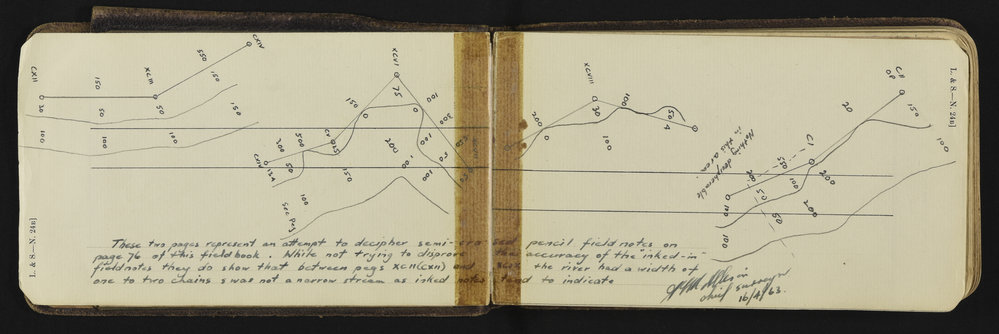 L. & S.—N. 24B]
CXII
150
XCIII
550
150
CXIV
30
50
50
150
100
100
100
XCVI
75
150
100
300
CV
200
50
500
150
200
100
50
100
100
See pg
XCVIII
200
30
100
100
50
CII
OP
20
150
100
CI
200
100
200
50
50
100
100
Nothing decipherable
in this area
L. & S.—N. 24B]
These two pages represent an attempt to decipher semi-erased pencil field notes on
page 76 of this fieldbook. While not trying to disprove the accuracy of the inked-in
fieldnotes they do show that between pegs XCII(CXII) and the river had a width of
one to two chains & was not a narrow stream as inked notes tend to indicate
Chief Surveyor
16/4/63.